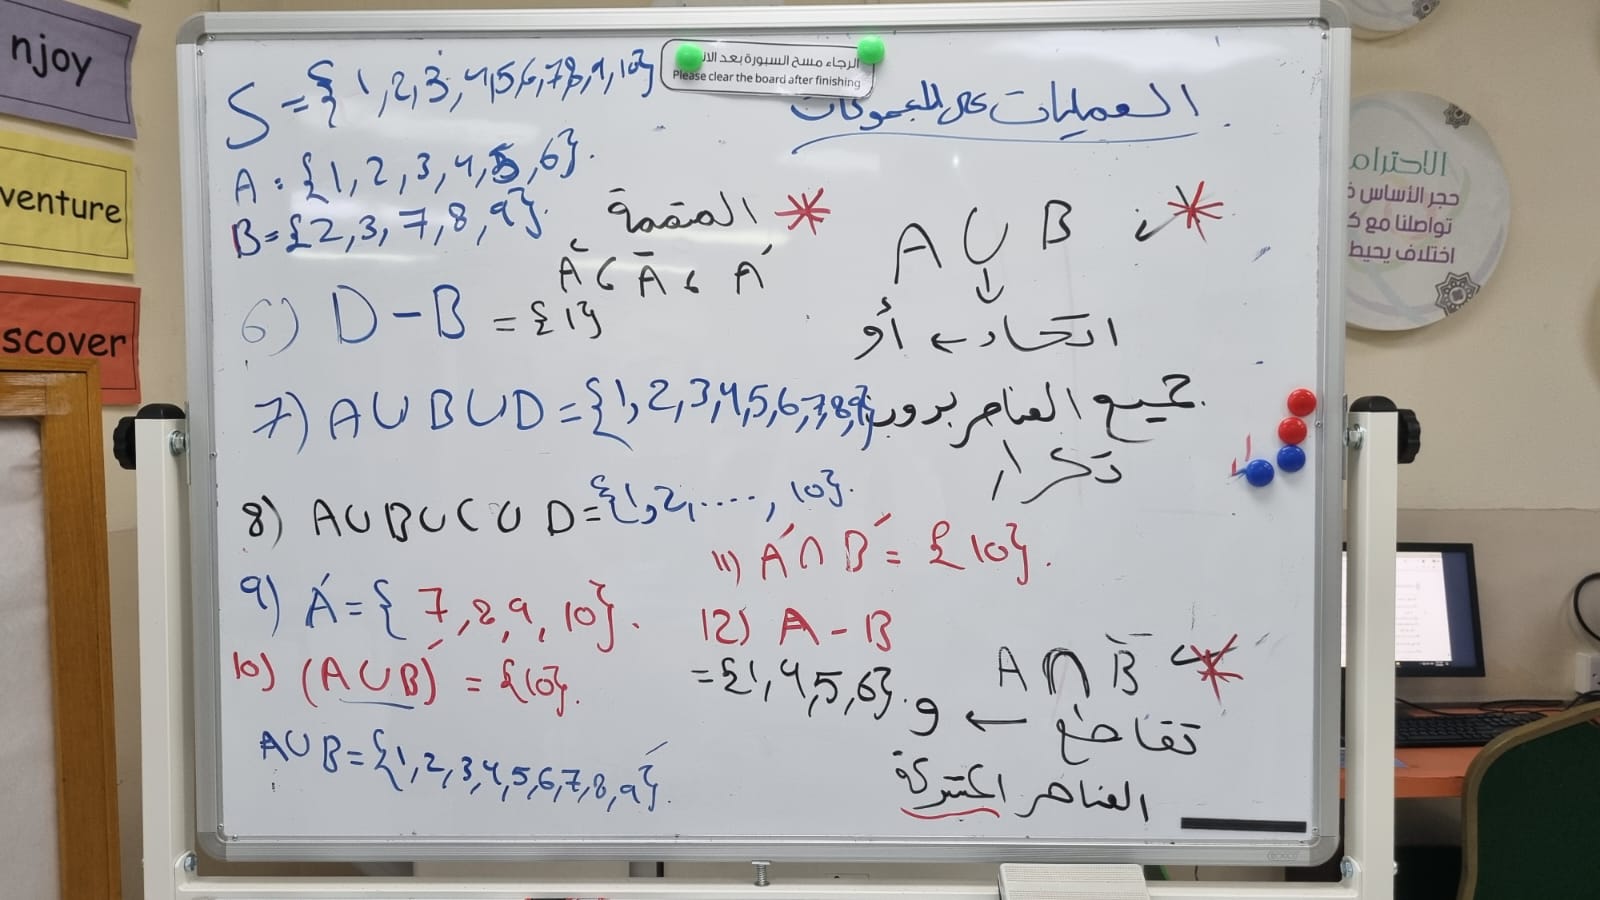 njoy
venture
scover
الرجاء مسح السبورة بعد الان
Please clear the board after finishing
العمليات على المجموعات
S = {1,2,3,4,5,6,7,8,9,10}
A = {1,2,3,4,5,6}.
B = {2,3,7,8,9}.
المتممة
A َ , A̅ , A′
6) D − B = {1}
7) A ∪ B ∪ D = {1,2,3,4,5,6,7,8,9}
8) A ∪ B ∪ C ∪ D = {1,2,....,10}.
9) A′ = {7,8,9,10}.
10) (A ∪ B)′ = {10}.
A ∪ B = {1,2,3,4,5,6,7,8,9}.
11) A′ ∩ B′ = {10}.
12) A − B
= {1,4,5,6}.
A ∪ B
↓
اتحاد ← أو
جميع العناصر بدون
تكرار
A ∩ B
تقاطع ← و
العناصر المشتركة
الاحترام
حجر الأساس
تواصلنا مع
اختلاف يحيط